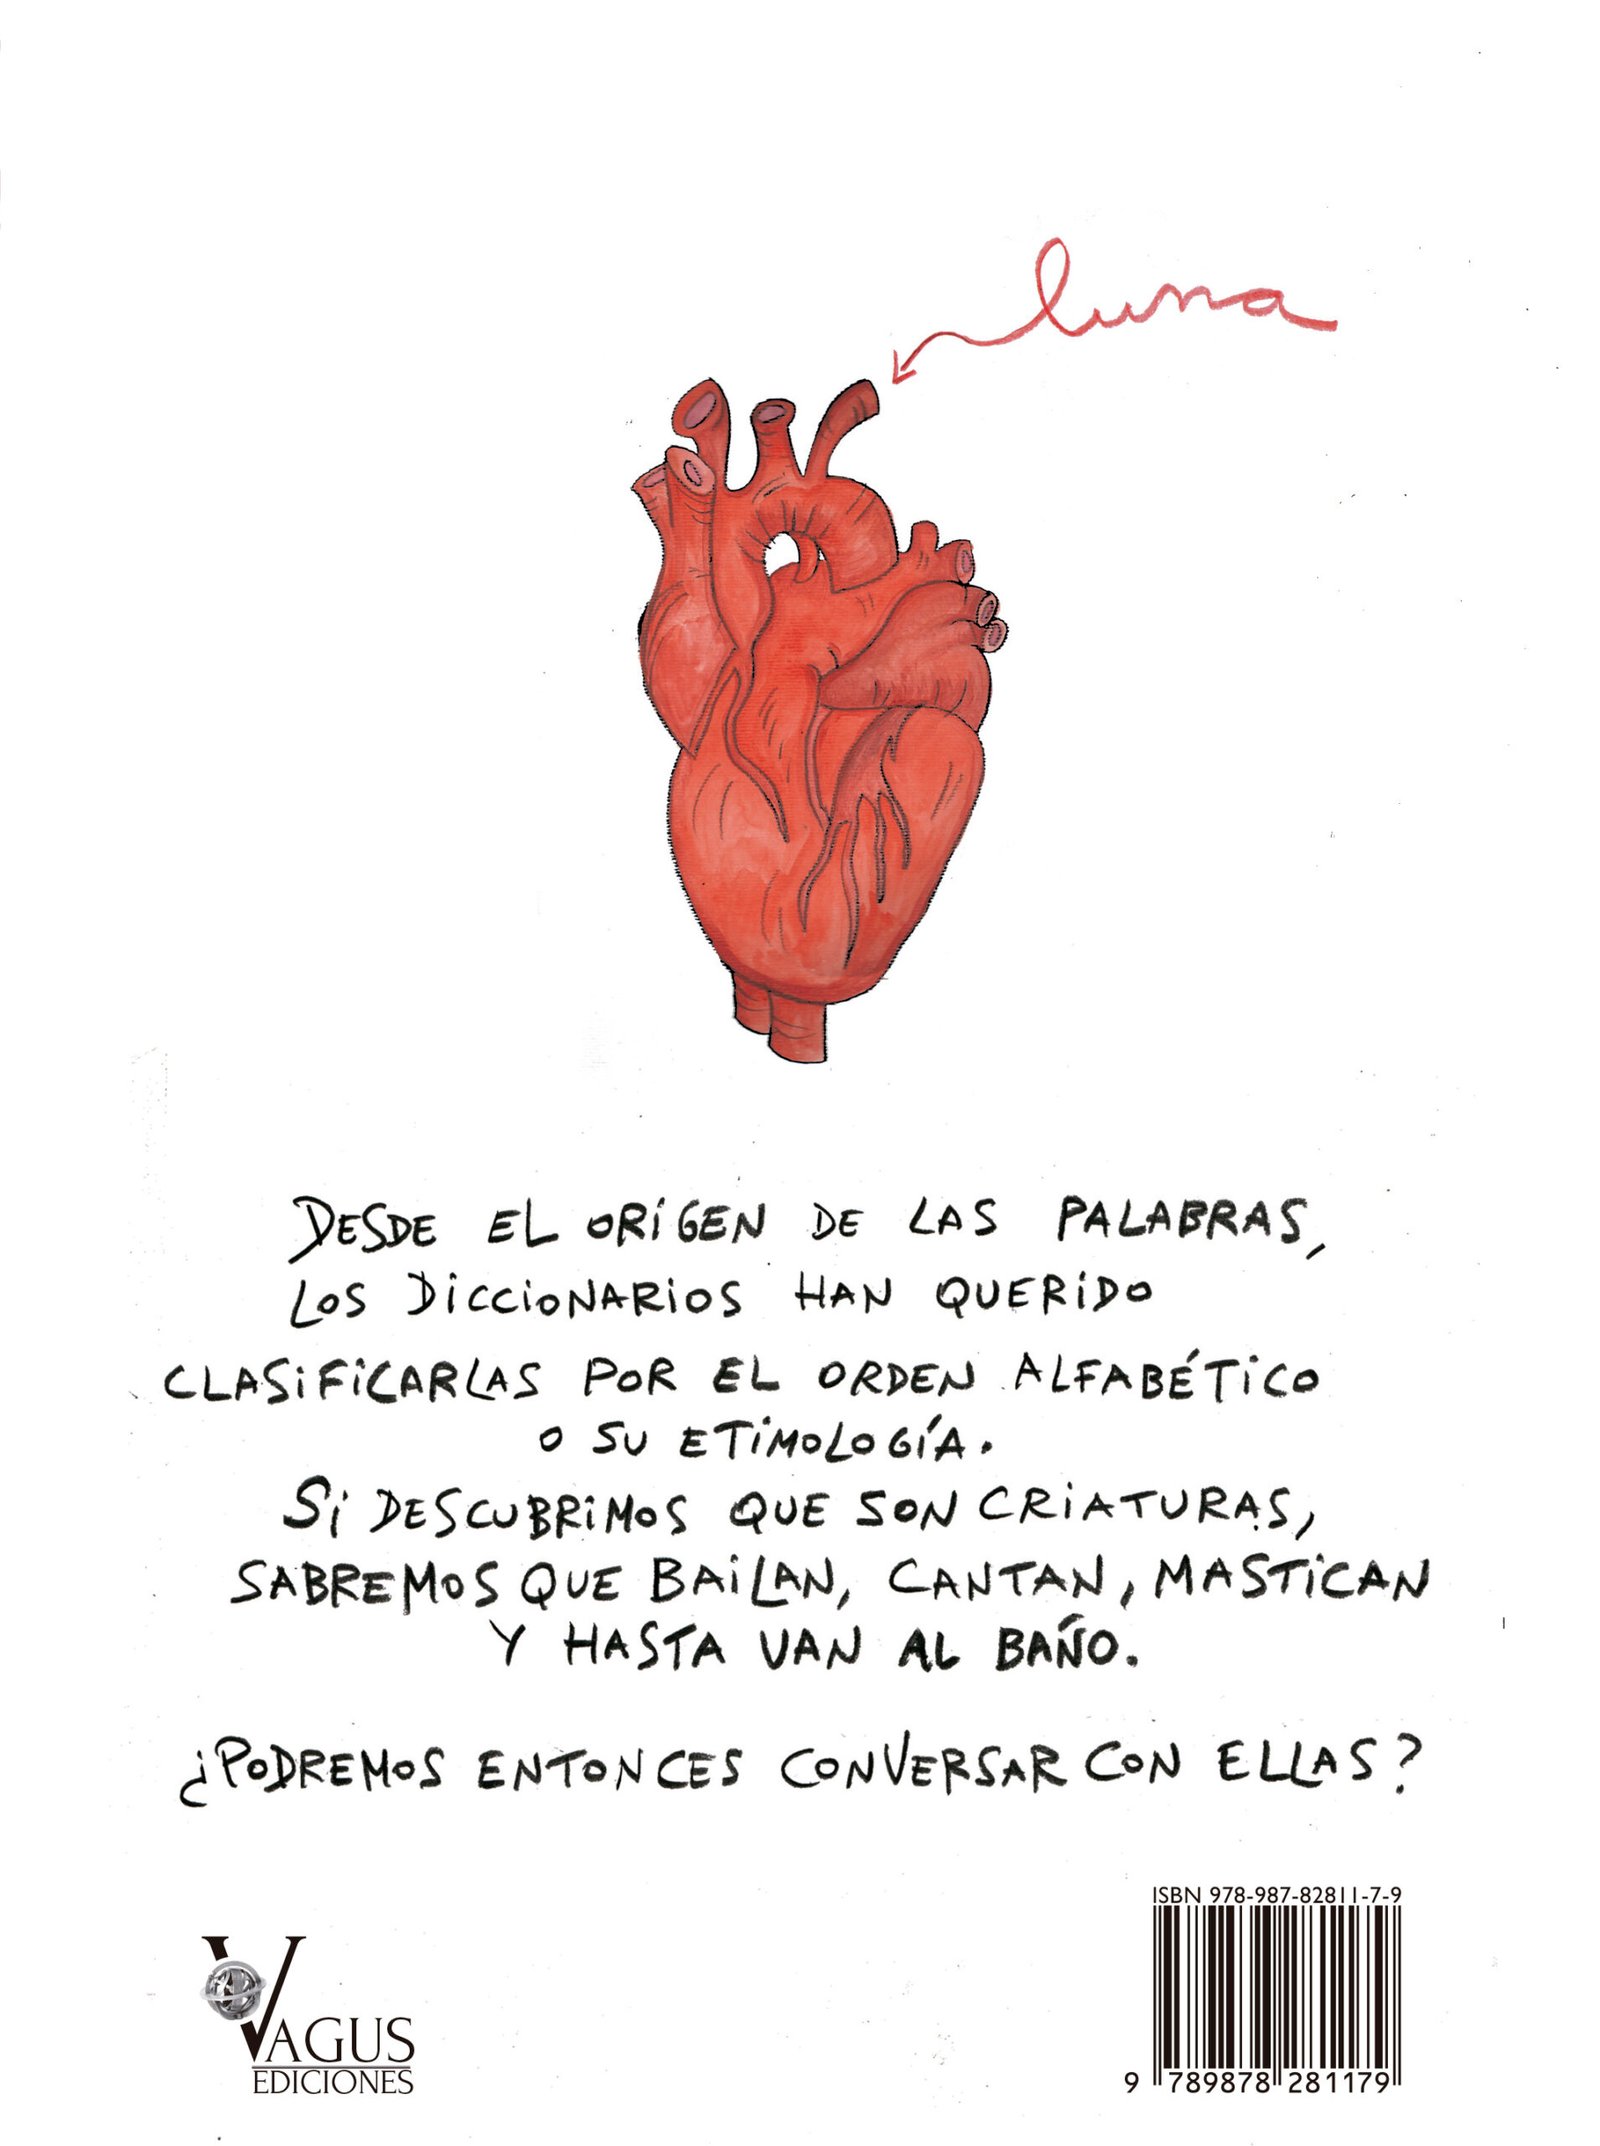 luna
DESDE EL ORIGEN DE LAS PALABRAS,
LOS DICCIONARIOS HAN QUERIDO
CLASIFICARLAS POR EL ORDEN ALFABÉTICO
O SU ETIMOLOGÍA.
SI DESCUBRIMOS QUE SON CRIATURAS,
SABREMOS QUE BAILAN, CANTAN, MASTICAN
Y HASTA VAN AL BAÑO.
¿PODREMOS ENTONCES CONVERSAR CON ELLAS?
ISBN 978-987-82811-7-9
VAGUS
EDICIONES
9 789878 281179